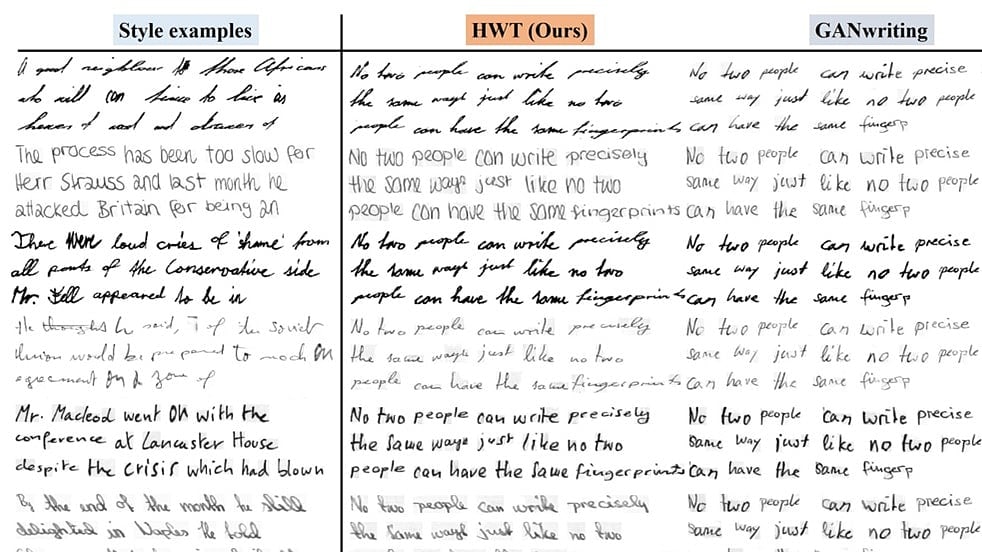 Style examples HWT (Ours) GANwriting
A good neighbour to those Africans No two people can write precisely No two people can write precise
who will can time to live in the same ways just like no two same way just like no two people
hewers of wood and drawers of people can have the same fingerprints can have the same fingerp
The process has been too slow for No two people can write precisely No two people can write precise
Herr Strauss and last month he the same ways just like no two same way just like no two people
attacked Britain for being an people can have the same fingerprints can have the same fingerp
There were loud cries of 'shame' from No two people can write precisely No two people can write precise
all parts of the Conservative side the same ways just like no two same way just like no two people
Mr. Fell appeared to be in people can have the same fingerprints can have the same fingerp
He thoughts he said, of the Soviet No two people can write precisely No two people can write precise
Union would be prepared to reach an the same ways just like no two same way just like no two people
agreement on a zone of people can have the same fingerprints can have the same fingerp
Mr. Macleod went on with the No two people can write precisely No two people can write precise
conference at Lancaster House the same ways just like no two same way just like no two people
despite the crisis which had blown people can have the same fingerprints can have the same fingerp
By the end of the month he still No two people can write precisely No two people can write precise
delighted in Naples he told the same ways just like no two same way just like no two people